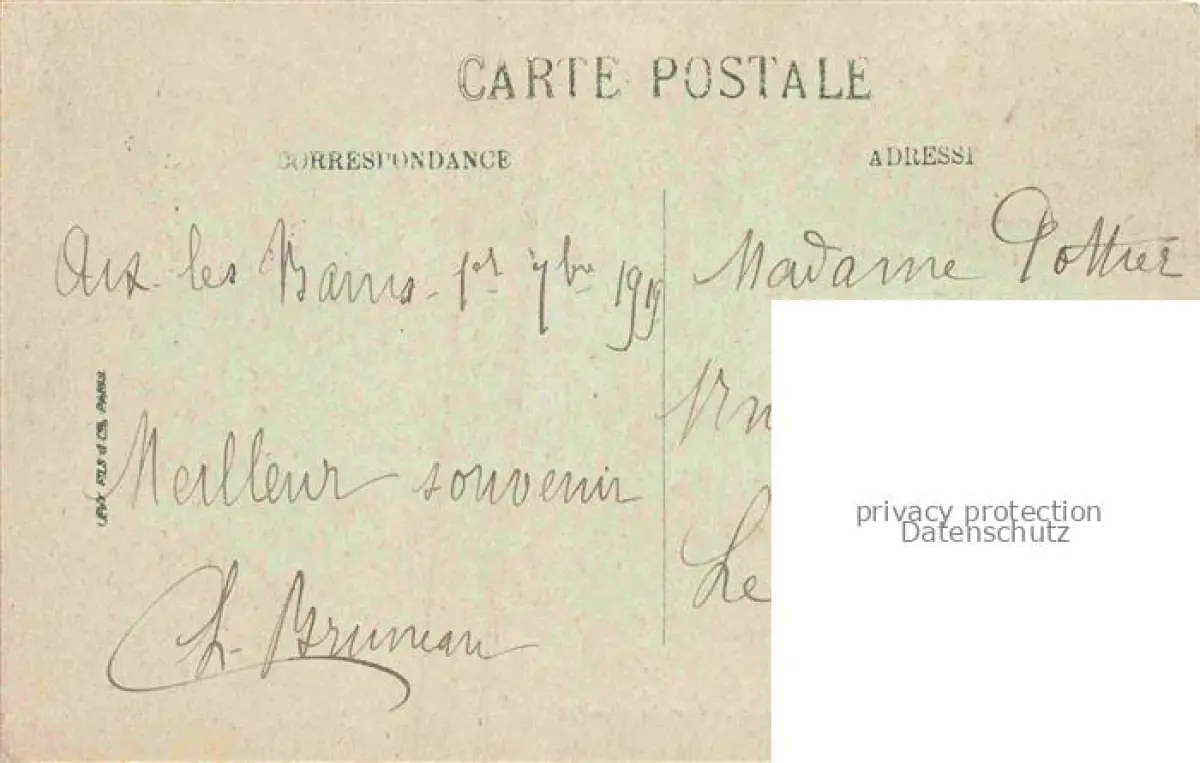 CARTE POSTALE
CORRESPONDANCE
ADRESSE
Aix-les Bains- 1er 7bre 1919
Madame Pottier
Meilleur souvenir
Le
Ch. Bruneau
LEVY FILS & Cie, PARIS
privacy protection
Datenschutz